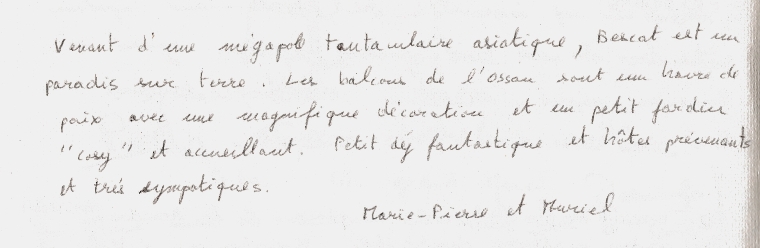 Venant d'une mégapole tentaculaire asiatique, Bescat est un
paradis sur terre. Les balcons de l'Ossau sont un havre de
paix avec une magnifique décoration et un petit jardin
"cosy" et accueillant. Petit déj fantastique et hôtes prévenants
et très sympatiques.
Marie-Pierre et Muriel